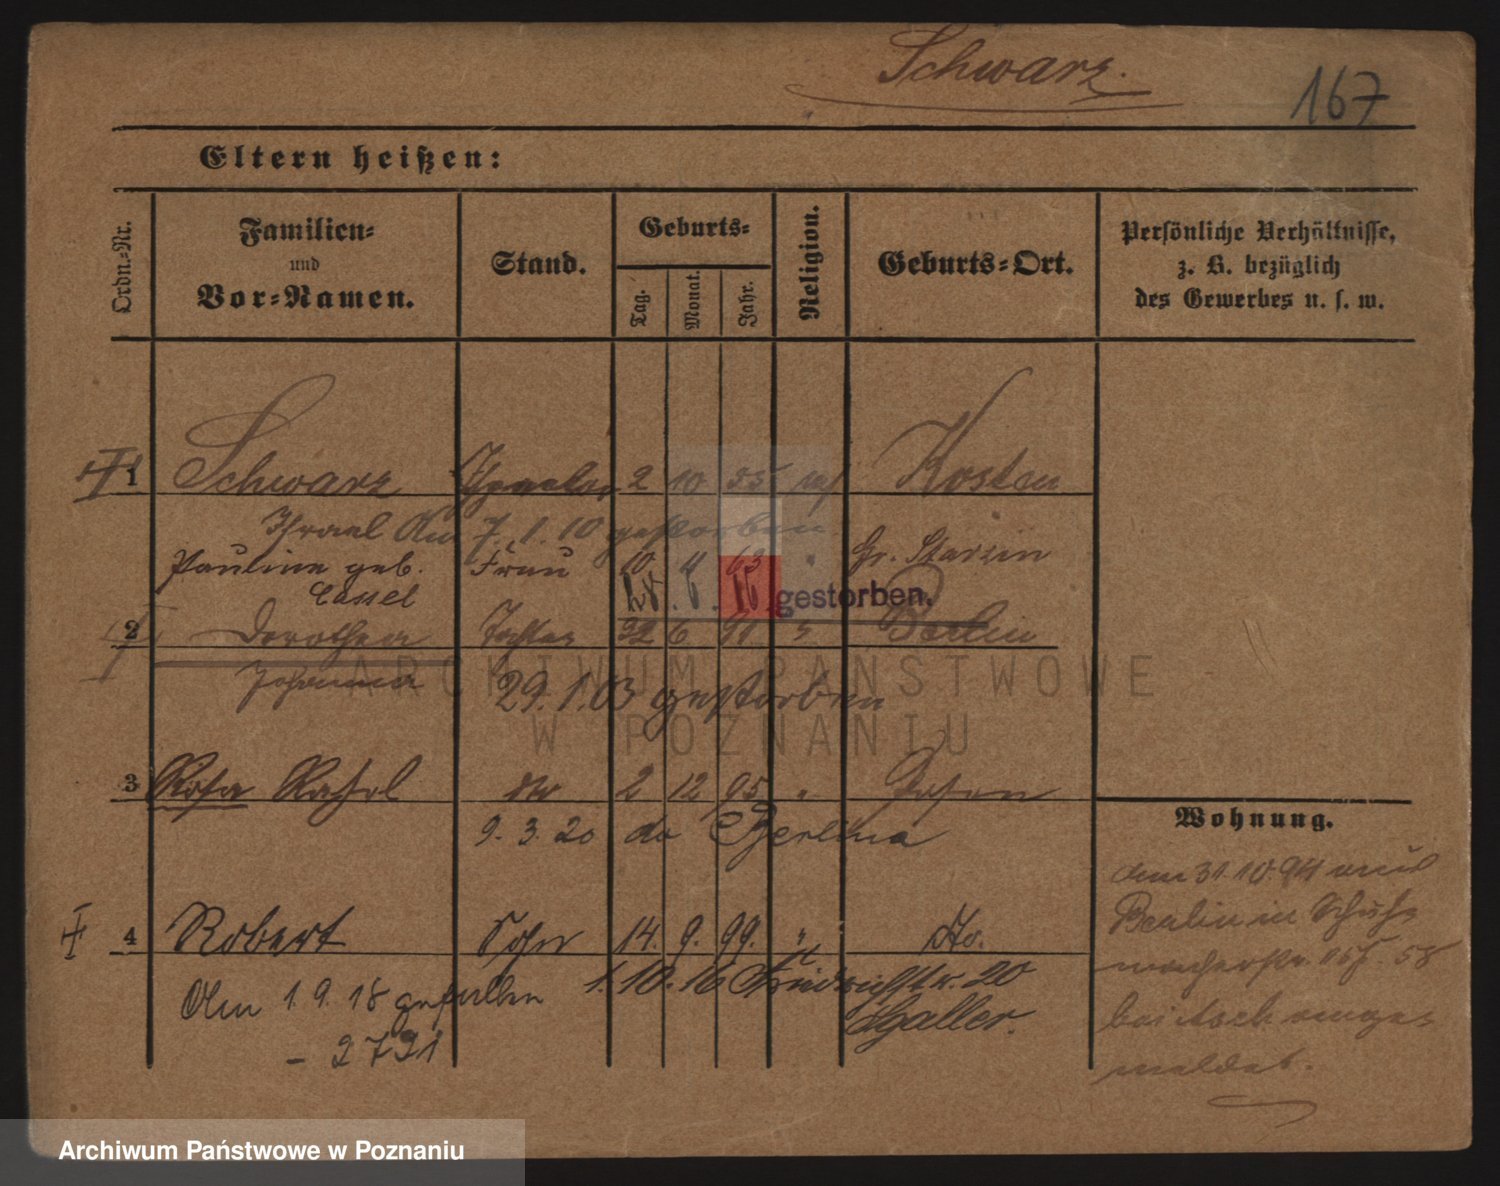 Schwarz.
167
Eltern heißen:
Ordn.-Nr.
Familien-
und
Vor-Namen.
Stand.
Geburts-
Tag.
Monat.
Jahr.
Religion.
Geburts-Ort.
Persönliche Verhältnisse,
z. B. bezüglich
des Gewerbes u. s. w.
1 Schwarz 2 10 55 Kosten
7. 1. 10 gestorben
Pauline geb. Frau 10 63 "
Cassel
gestorben.
2 Dorothea Tochter 6 91 " Berlin
Johanna 29.1.03 gestorben
3 Rosa Rahel 2 12 95 " Posen
9. 3. 20 do Berlina
4 Robert Sohn 14. 9. 99. " do.
Am 1.9.18 gefallen 1.10.16 Friedrichstr. 20
Haller.
- 2721
Wohnung.
den 31.10.94 aus
Berlin in Schuh-
macherstr. 58
bei Asch ange-
meldet.
ARCHIWUM PAŃSTWOWE
W POZNANIU
Archiwum Państwowe w Poznaniu